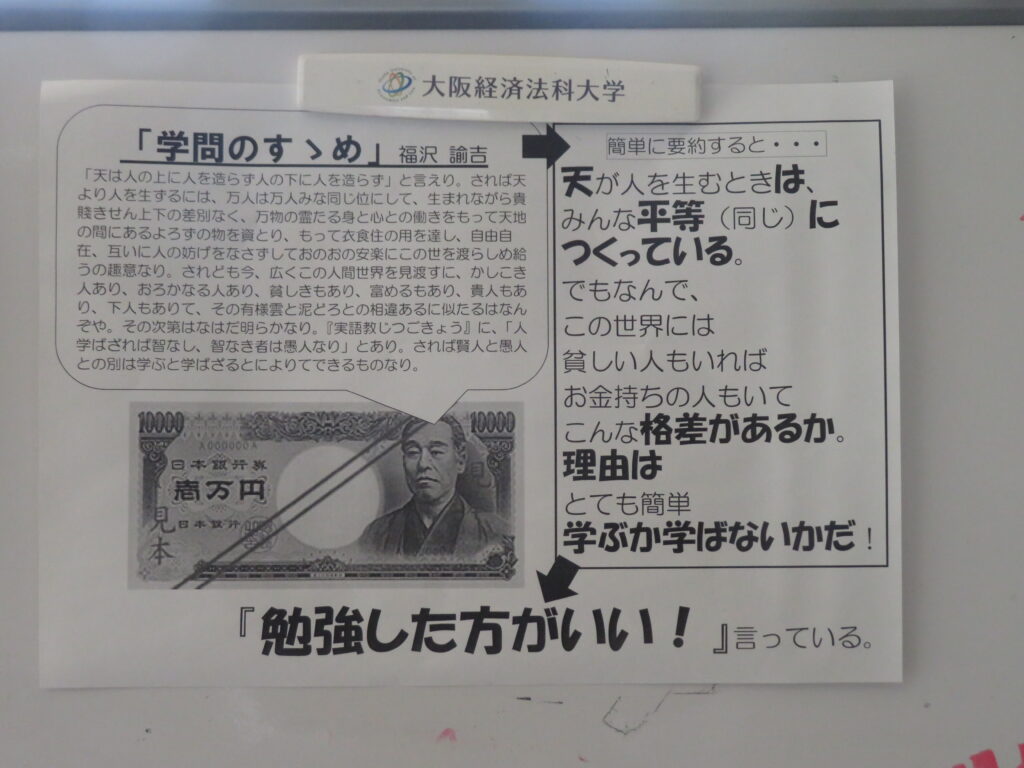 大阪経済法科大学
「学問のすゝめ」 福沢 諭吉
「天は人の上に人を造らず人の下に人を造らず」と言えり。されば天
より人を生ずるには、万人は万人みな同じ位にして、生まれながら貴
賤きせん上下の差別なく、万物の霊たる身と心との働きをもって天地
の間にあるよろずの物を資とり、もって衣食住の用を達し、自由自
在、互いに人の妨げをなさずしておのおの安楽にこの世を渡らしめ給
うの趣意なり。されども今、広くこの人間世界を見渡すに、かしこき
人あり、おろかなる人あり、貧しきもあり、富めるもあり、貴人もあ
り、下人もありて、その有様雲と泥どろとの相違あるに似たるはなん
ぞや。その次第はなはだ明らかなり。『実語教じつごきょう』に、「人
学ばざれば智なし、智なき者は愚人なり」とあり。されば賢人と愚人
との別は学ぶと学ばざるとによりてできるものなり。
10000
10000
A000000A
日本銀行券
壱万円
日本銀行
見本
見
簡単に要約すると・・・
天が人を生むときは、
みんな平等（同じ）に
つくっている。
でもなんで、
この世界には
貧しい人もいれば
お金持ちの人もいて
こんな格差があるか。
理由は
とても簡単
学ぶか学ばないかだ！
『勉強した方がいい！』言っている。